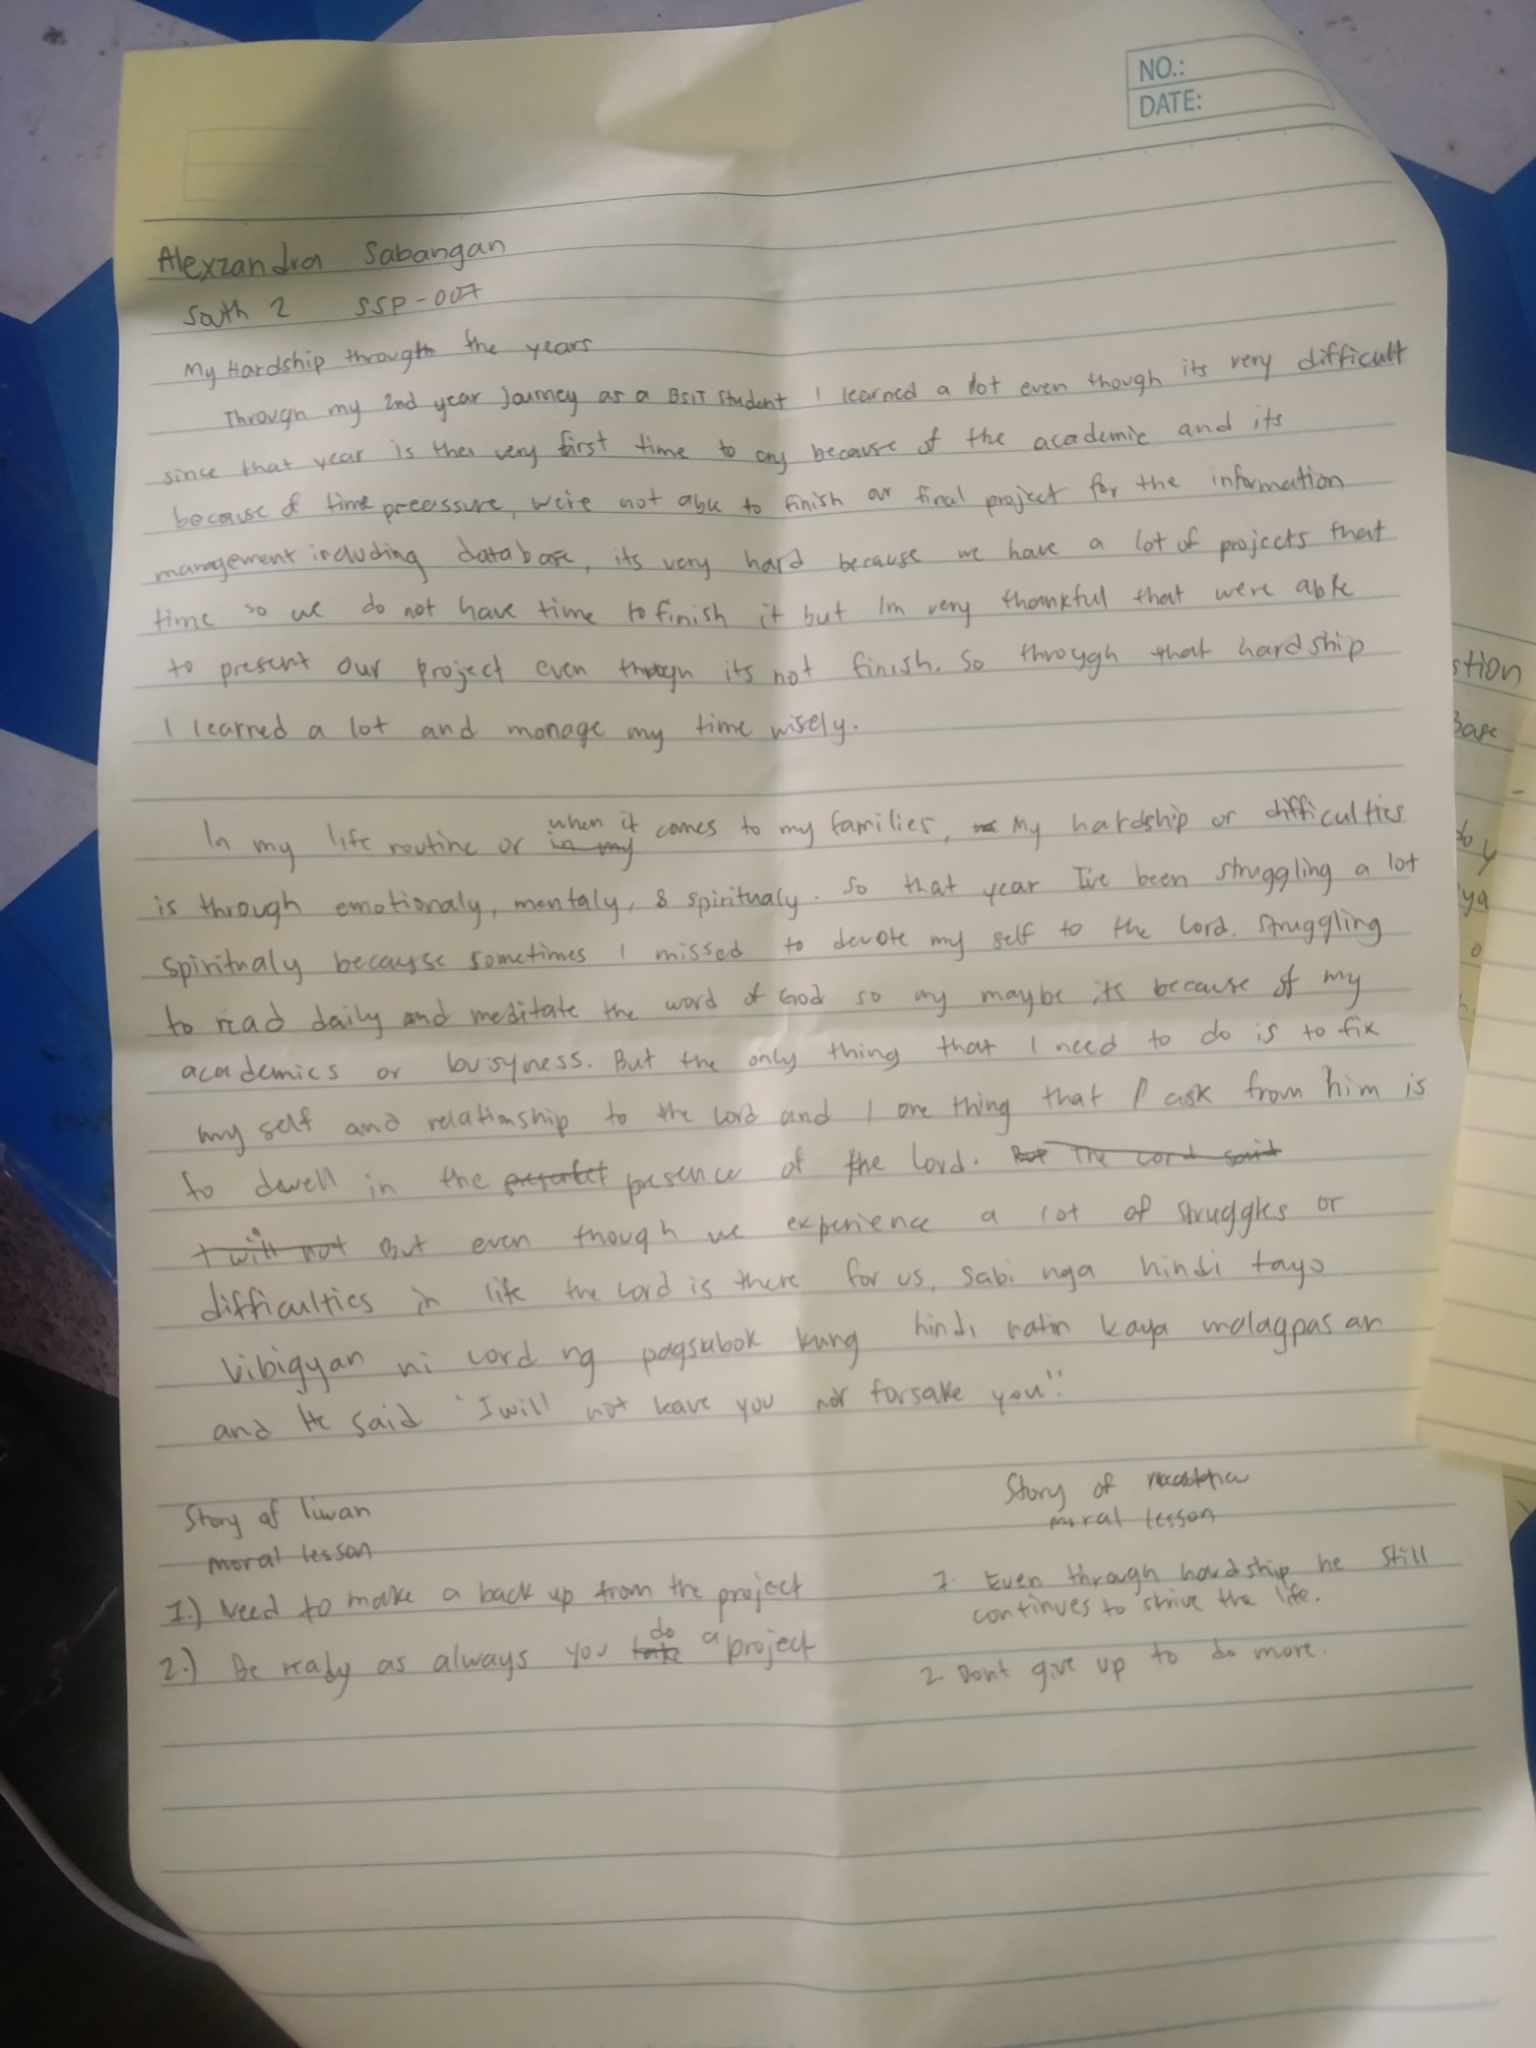 NO.:
DATE:
Alexzandra Sabangan
South 2 SSP-007
My Hardship through the years
Through my 2nd year Journey as a BSIT Student I learned a lot even though its very difficult
since that year is the very first time to cry because of the academic and its
because of time preessure, we're not able to finish our final project for the information
management including database, its very hard because we have a lot of projects that
time so we do not have time to finish it but Im very thankful that were able
to present our project even though its not finish. So through that hardship
I learned a lot and manage my time wisely.
In my life routine or when it comes to my families, My hardship or difficulties
is through emotionaly, mentaly, & spiritualy. So that year I've been struggling a lot
spiritualy because sometimes I missed to devote my self to the Lord. Struggling
to read daily and meditate the word of God so my maybe its because of my
academics or busyness. But the only thing that I need to do is to fix
my self and relationship to the Lord and I one thing that I ask from him is
to dwell in the presence of the Lord. But The Lord said
I will not But even though we experience a lot of struggles or
difficulties in life the Lord is there for us, Sabi nga hindi tayo
bibigyan ni Lord ng pagsubok kung hindi natin kaya malagpasan
and He said "I will not leave you nor forsake you".
Story of liwan
moral lesson
1.) Need to make a back up from the project
2.) Be ready as always you do a project
Story of
moral lesson
1. Even through hardship he still
continues to strive the life.
2. Dont give up to do more.
stion
Base
ya